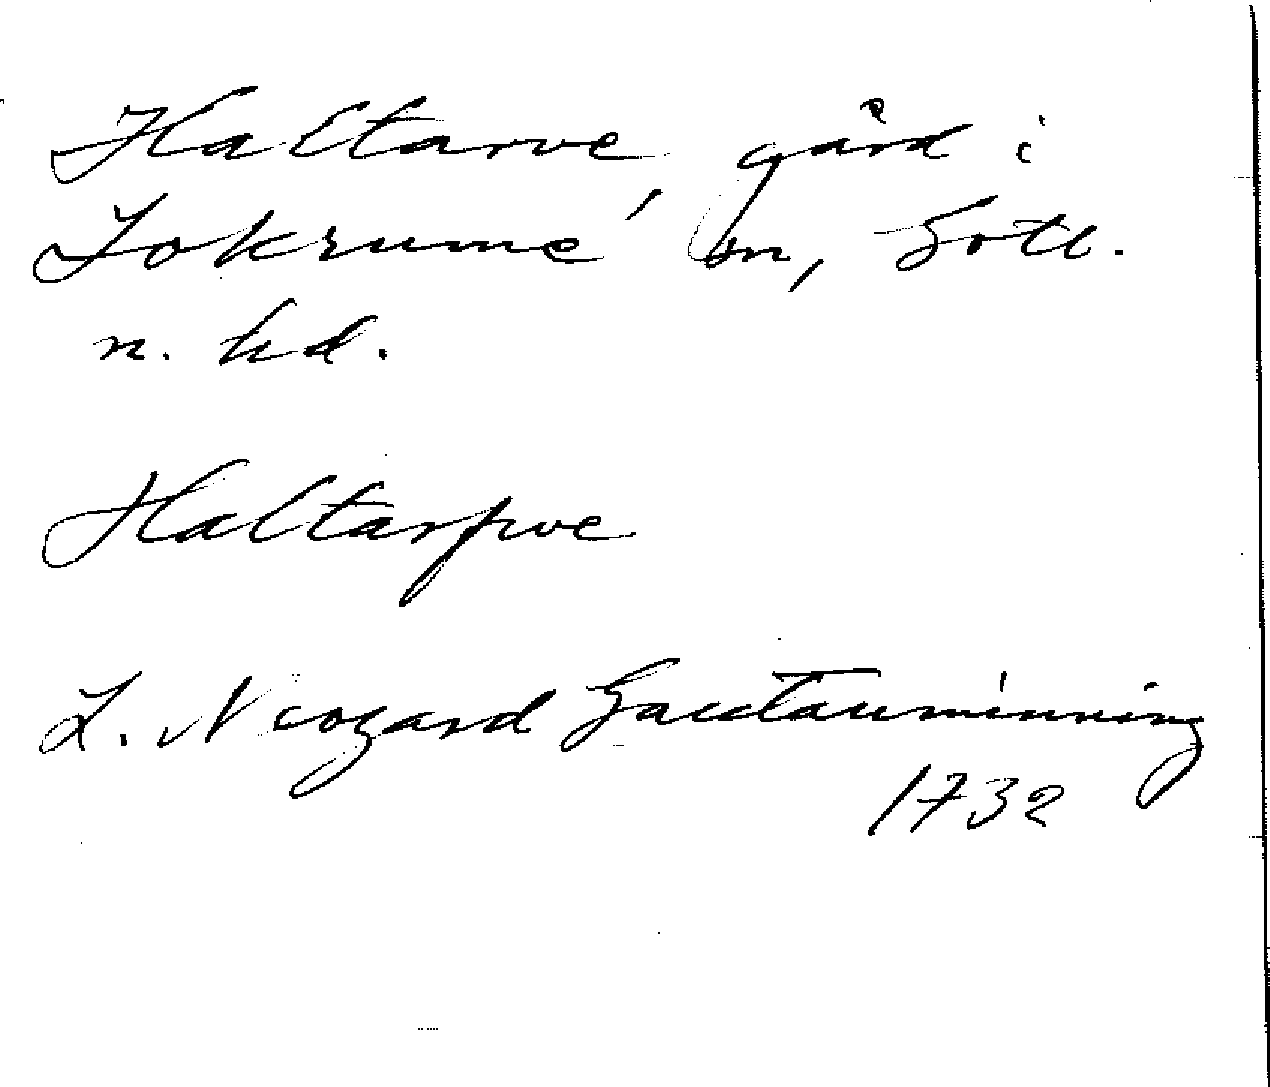 Haltarve, gård i
Lokrume sn, Gotl.
n. hd.
Haltarfwe
L. Neogard Gautauminning
1732